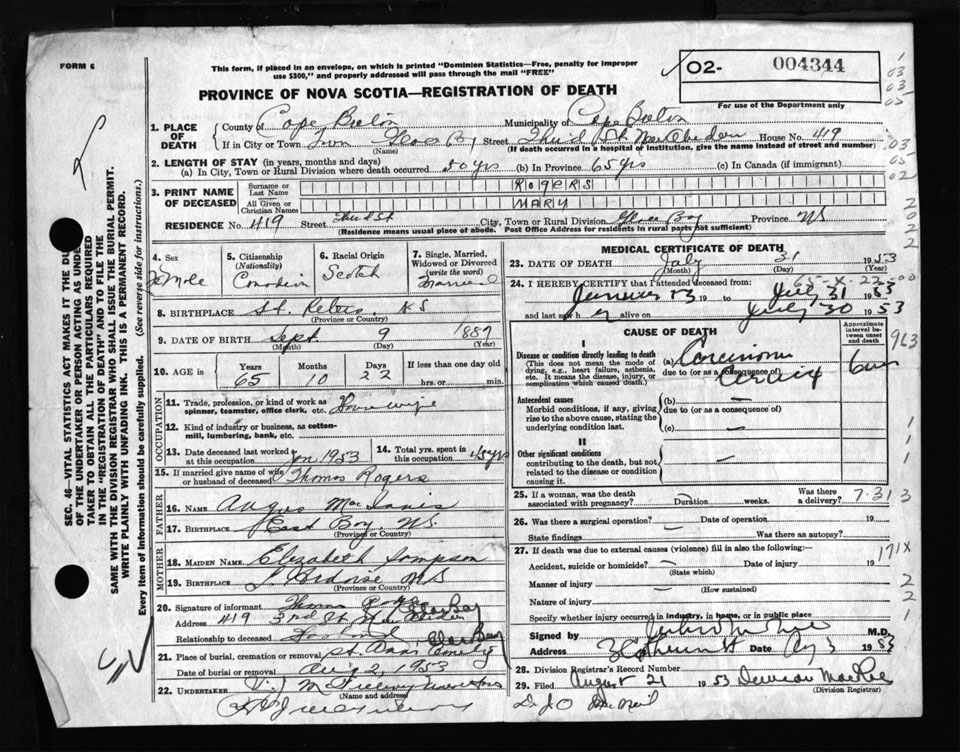 FORM 6
This form, if placed in an envelope, on which is printed "Dominion Statistics—Free, penalty for improper use $300," and properly addressed will pass through the mail "FREE"
02- 004344
For use of the Department only
PROVINCE OF NOVA SCOTIA—REGISTRATION OF DEATH
1. PLACE OF DEATH
County of Cape Breton Municipality of Cape Breton
If in City or Town Town Glace Bay Street Third St. New Aberdeen House No. 419
(Name) (If death occurred in a hospital or institution, give the name instead of street and number)
2. LENGTH OF STAY (in years, months and days)
(a) In City, Town or Rural Division where death occurred 50 yrs (b) In Province 65 yrs (c) In Canada (if immigrant)
3. PRINT NAME OF DECEASED
Surname or Last Name ROGERS
All Given or Christian Names MARY
RESIDENCE No. 419 Street Third St City, Town or Rural Division Glace Bay Province NS
(Residence means usual place of abode. Post Office Address for residents in rural parts not sufficient)
4. Sex Female
5. Citizenship (Nationality) Canadian
6. Racial Origin Scotch
7. Single, Married, Widowed or Divorced (write the word) Married
8. BIRTHPLACE St. Peters NS
(Province or Country)
9. DATE OF BIRTH Sept 9 1887
(Month) (Day) (Year)
10. AGE in Years 65 Months 10 Days 22 If less than one day old hrs. or min.
OCCUPATION
11. Trade, profession, or kind of work as spinner, teamster, office clerk, etc. Housewife
12. Kind of industry or business, as cotton-mill, lumbering, bank, etc.
13. Date deceased last worked at this occupation Jan 1953
14. Total yrs. spent in this occupation 45 yrs
15. If married give name of wife or husband of deceased Thomas Rogers
FATHER
16. NAME Angus
17. BIRTHPLACE East Bay, NS
(Province or Country)
MOTHER
18. MAIDEN NAME Elizabeth Sampson
19. BIRTHPLACE L'Ardoise NS
(Province or Country)
20. Signature of informant Thomas
Address 419 3rd St New Aberdeen Glace Bay
Relationship to deceased Husband
21. Place of burial, cremation or removal St. Anns Cemetery Glace Bay
Date of burial or removal Aug 2, 1953
22. UNDERTAKER
(Name and address)
MEDICAL CERTIFICATE OF DEATH
23. DATE OF DEATH July 31 1953
(Month) (Day) (Year)
24. I HEREBY CERTIFY that I attended deceased from:
65-X-22-00
January 53 19 to July 31 1953
and last saw her alive on July 30 1953
CAUSE OF DEATH
Approximate interval between onset and death
I
Disease or condition directly leading to death
(This does not mean the mode of dying, e.g., heart failure, asthenia, etc. It means the disease, injury, or complication which caused death.)
(a) Carcinoma
due to (or as a consequence of)
cervix
Antecedent causes
Morbid conditions, if any, giving rise to the above cause, stating the underlying condition last.
(b) —
due to (or as a consequence of)
(c) —
II
Other significant conditions
contributing to the death, but not related to the disease or condition causing it. —
25. If a woman, was the death associated with pregnancy? — Duration weeks. Was there a delivery?
7-31 3
26. Was there a surgical operation? — Date of operation 19
State findings Was there an autopsy?
27. If death was due to external causes (violence) fill in also the following:—
Accident, suicide or homicide? — Date of injury 19
(State which)
171X
Manner of injury
(How sustained)
Nature of injury
Specify whether injury occurred in industry, in home, or in public place
Signed by M.D.
Address Date Aug 3 1953
28. Division Registrar's Record Number
29. Filed August 21 1953 Duncan MacRae
(Division Registrar)
963
SEC. 46—VITAL STATISTICS ACT MAKES IT THE DUTY OF THE UNDERTAKER OR PERSON ACTING AS UNDERTAKER TO OBTAIN ALL THE PARTICULARS REQUIRED IN THE "REGISTRATION OF DEATH" AND TO FILE THE SAME WITH THE DIVISION REGISTRAR WHO SHALL ISSUE THE BURIAL PERMIT.
WRITE PLAINLY WITH UNFADING INK. THIS IS A PERMANENT RECORD.
Every item of information should be carefully supplied. (See reverse side for instructions.)